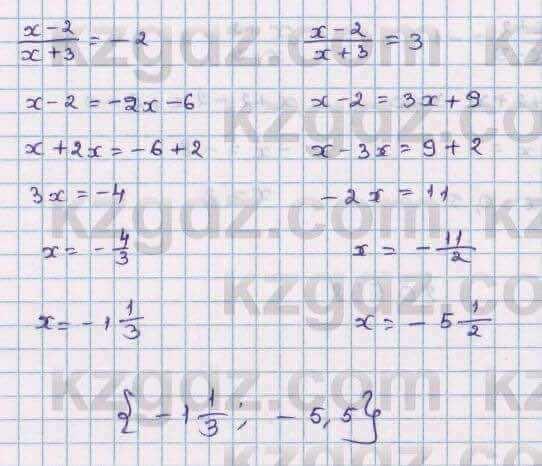 (x-2)/(x+3) = -2
x-2 = -2x-6
x+2x = -6+2
3x = -4
x = -4/3
x = -1 1/3
(x-2)/(x+3) = 3
x-2 = 3x+9
x-3x = 9+2
-2x = 11
x = -11/2
x = -5 1/2
{-1 1/3; -5,5}
kzgdz.com
kzgdz.com
kzgdz.com
kzgdz.com
kzgdz.com